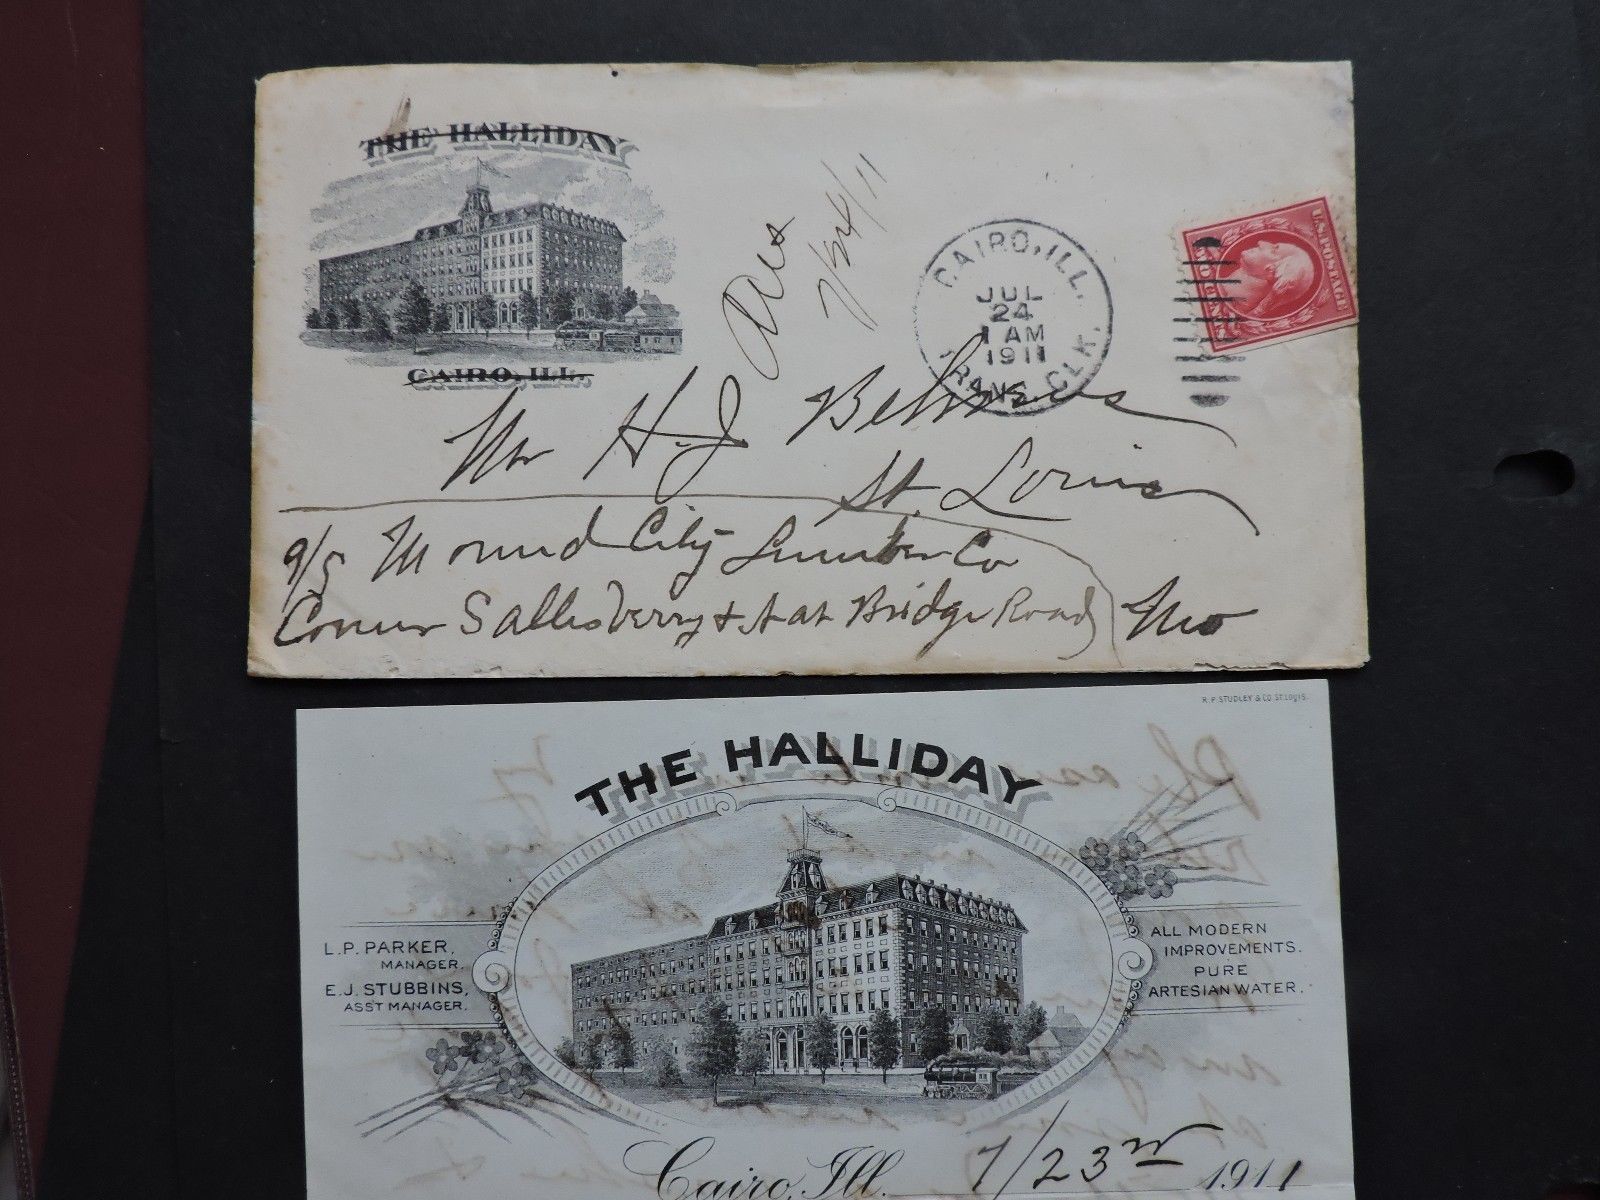 THE HALLIDAY
CAIRO, ILL.
Ans
7/24/11
CAIRO, ILL.
JUL
24
1 AM
1911
TRANS. CLK.
U.S. POSTAGE
TWO CENTS
Mr H. J Behrens
St. Louis
c/o Mound City Lumber Co
Corner Sallisberry & Nat Bridge Road
Mo
R. P. STUDLEY & CO. ST. LOUIS.
THE HALLIDAY
L. P. PARKER,
MANAGER.
E. J. STUBBINS,
ASS'T MANAGER.
ALL MODERN
IMPROVEMENTS.
PURE
ARTESIAN WATER.
Cairo, Ill. 7/23rd 1911